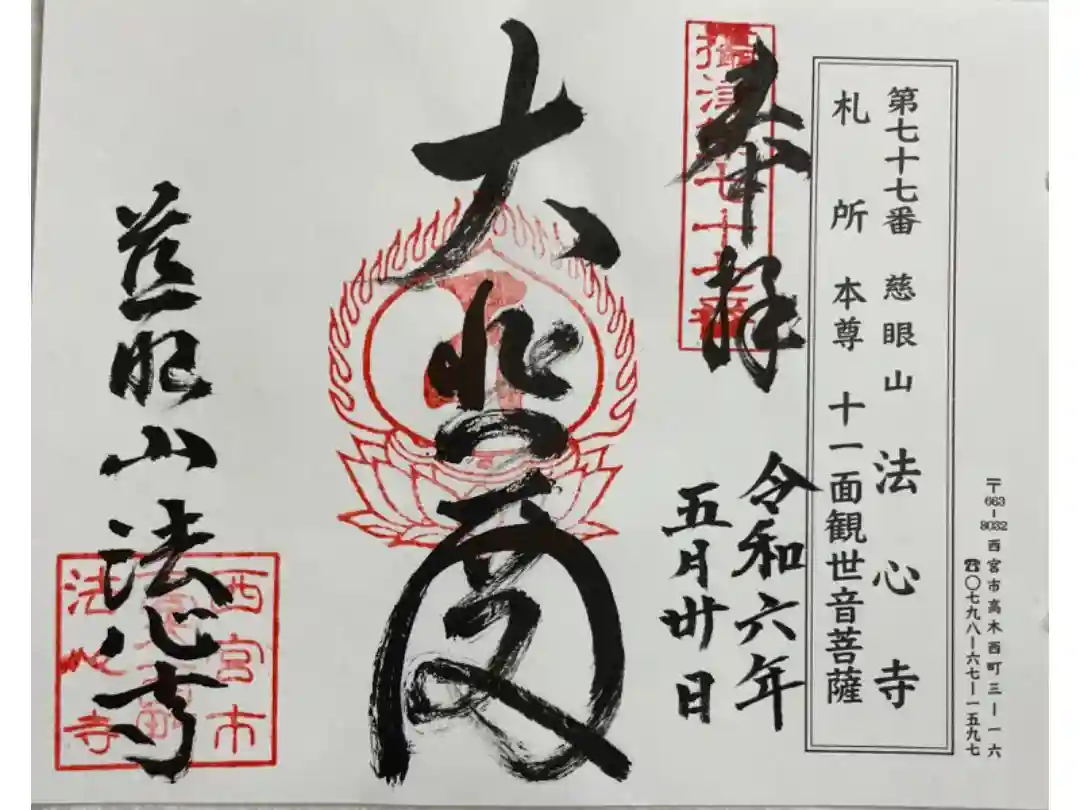 〒663-8032 西宮市高木西町三ー一六
☎〇七九八ー六七ー一五九七
第七十七番 慈眼山 法心寺
札所本尊 十一面観世音菩薩
奉拝
攝津第七十七番
令和六年
五月卅日
大悲閣
慈眼山法心寺
西宮市
法心寺